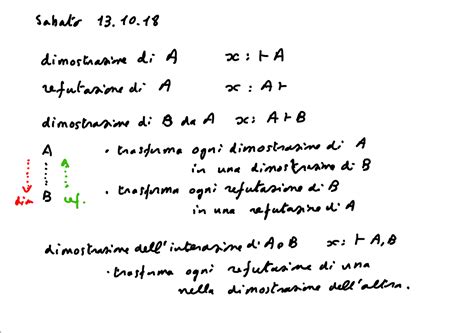 Sabato 13.10.18
dimostrazione di A x : ⊢ A
refutazione di A x : A ⊢
dimostrazione di B da A x : A ⊢ B
A · trasforma ogni dimostrazione di A
in una dimostrazione di B
B · trasforma ogni refutazione di B
dim ref.
in una refutazione di A
dimostrazione dell'interazione di A o B x : ⊢ A, B
· trasforma ogni refutazione di una
nella dimostrazione dell'altra.